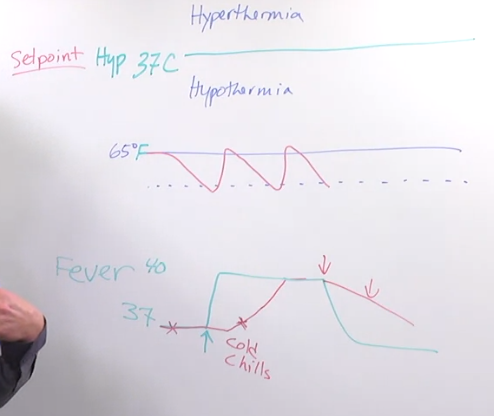 Hyperthermia
Setpoint Hyp 37C
Hypothermia
65°F
Fever 40
37
Cold
Chills